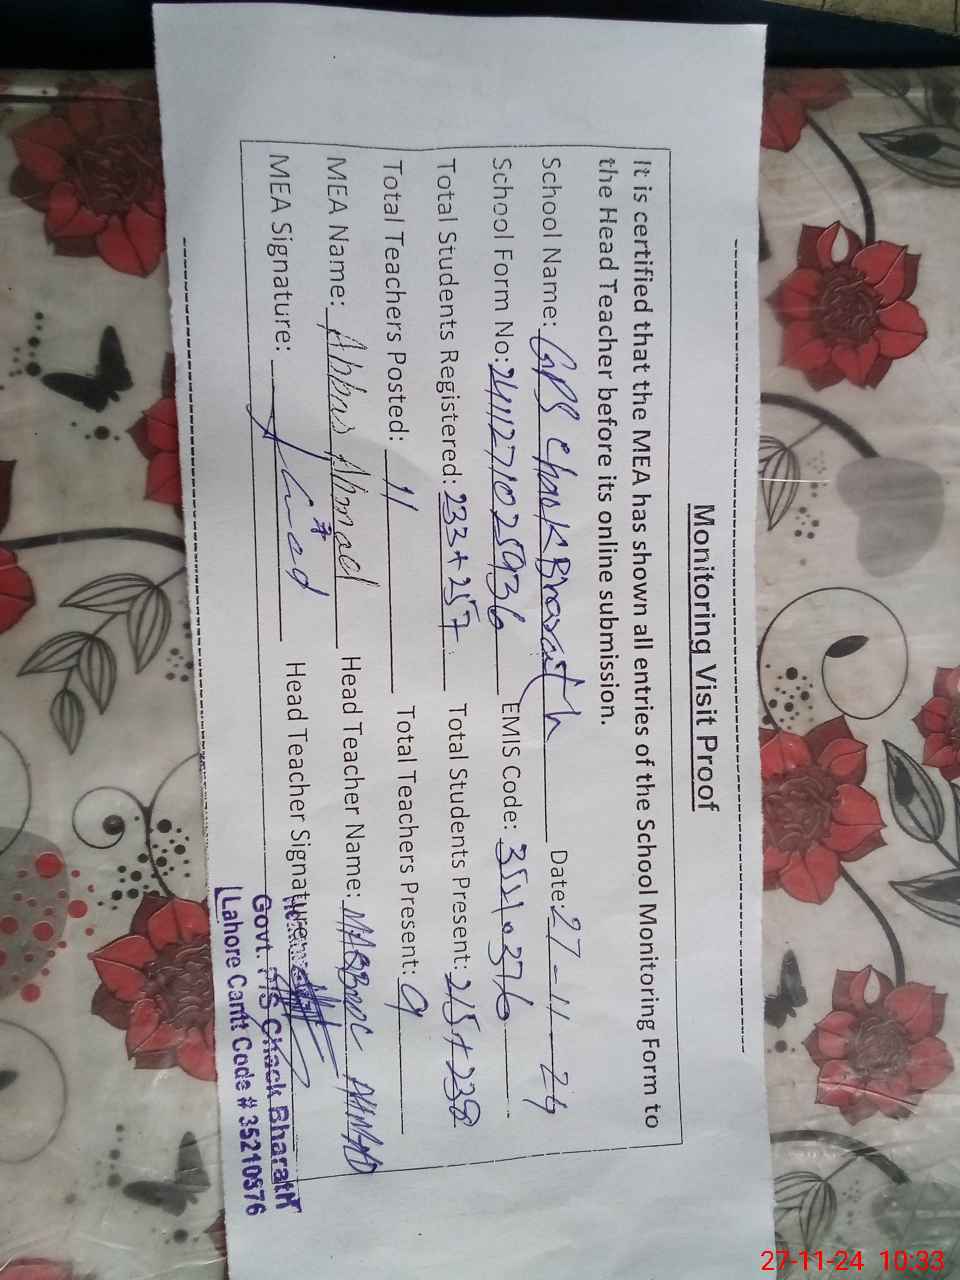 Monitoring Visit Proof
It is certified that the MEA has shown all entries of the School Monitoring Form to
the Head Teacher before its online submission.
School Name: GPS Chak Bharath Date: 27-11-24
School Form No: 2411271025936 EMIS Code: 35210376
Total Students Registered: 233+257 Total Students Present: 215+238
Total Teachers Posted: 11 Total Teachers Present: 9
MEA Name: Abbas Ahmad Head Teacher Name: MAQBOOL AHMAD
MEA Signature: Head Teacher Signature:
Govt. P/S Chack Bharath
Lahore Cantt Code # 35210376
27-11-24 10:33